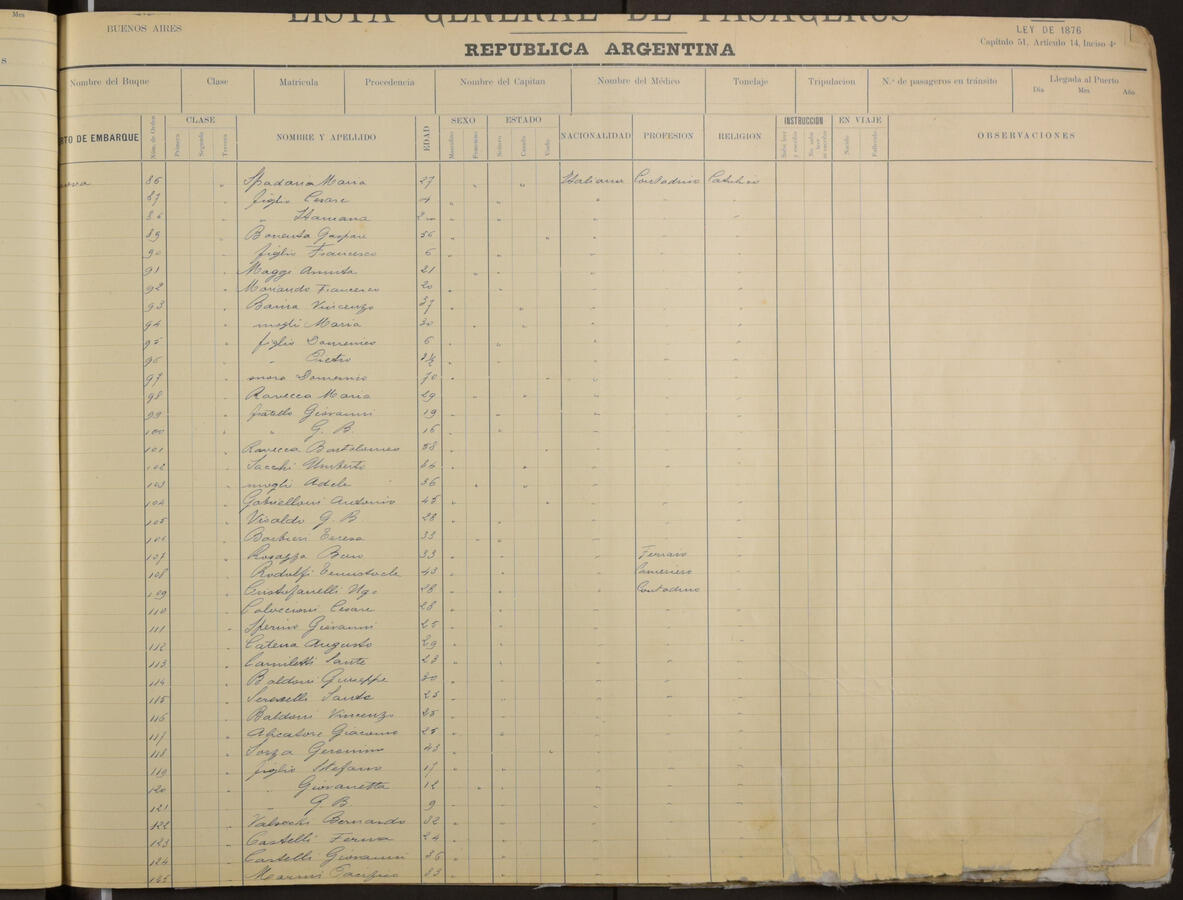 Mes
BUENOS AIRES
LISTA GENERAL DE PASAGEROS
LEY DE 1876
Capítulo 51, Artículo 14, Inciso 4º
REPUBLICA ARGENTINA
Nombre del Buque Clase Matricula Procedencia Nombre del Capitan Nombre del Médico Tonelaje Tripulacion N.º de pasageros en tránsito Llegada al Puerto
Dia Mes Año
RTO DE EMBARQUE Núm. de Orden CLASE NOMBRE Y APELLIDO EDAD SEXO ESTADO NACIONALIDAD PROFESION RELIGION INSTRUCCION EN VIAJE OBSERVACIONES
Primera Segunda Tercera Masculino Femenino Soltero Casado Viudo Sabe leer y escribir No sabe leer ni escribir Nacido Fallecido
86 Spadoria Maria 27 Italiana Contadino
87 figlio Cesare
89 Gaspare 56
90 figlio Francesco 6
91 Maggi 21
92 Francesco 20
93 Vincenzo 37
94 mogli Maria 30
95 figlio Domenico 6
96 Pietro
97 Domenico 70
98 Ravecca Maria 29
99 fratello Giovanni 19
100 " G. B. 16
101 Ravecca Bartolomeo 58
102 Sacchi Umberto
103 mogli Adele 36
104 Gabrielloni Antonio 45
105 Visaldo G. B. 28
106 Barbieri Teresa 33
107 33 Ferraro
108 Rodolfi Temistocle 43 Cameriere
109 Cristofanelli Ugo 28 Contadino
110 Cesare 28
111 Sperino Giovanni 25
112 Catena Augusto 29
113 Camiletti Sante 23
114 Baldoni Giuseppe 30
115 Sante 25
116 Baldoni Vincenzo 25
117 Giacomo 25
118 Sorza Geronimo 43
119 figlio Stefano 17
120 " Giovanetta 12
121 " G. B. 9
122 Valecchi Bernando 32
123 Castelli 24
124 Castelli Giovanni 36
125 Marini Pacifico 33